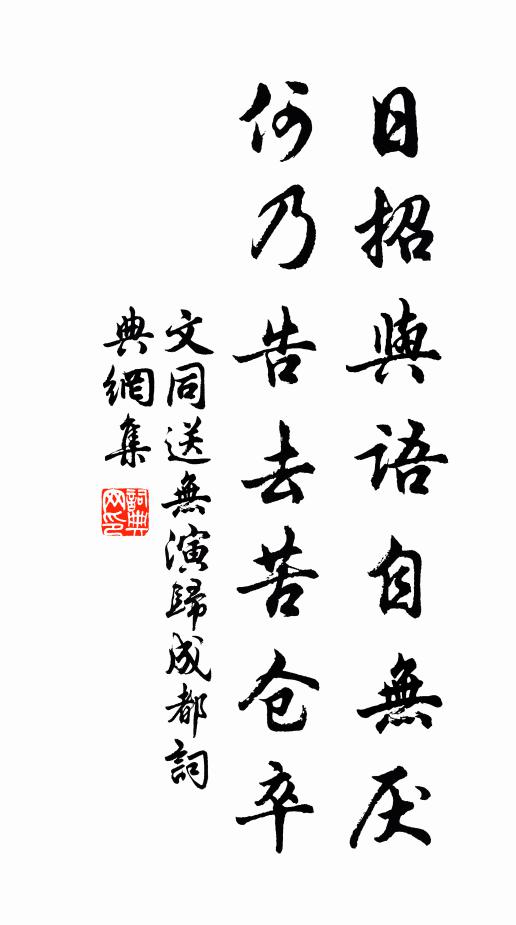 日招與語自無厌
何乃告去苦仓卒
文同送無演歸成都詞
典網集
詞典網印